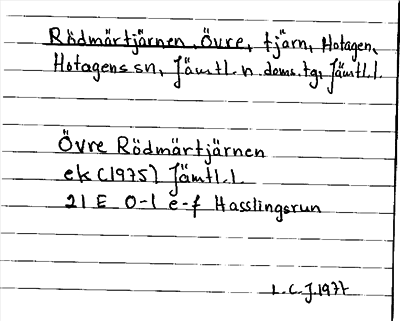 Rödmärtjärnen, Övre, tjärn, Hotagen,
Hotagens sn, Jämtl. n. doms. tg, Jämtl. l.
Övre Rödmärtjärnen
ek (1975) Jämtl. l.
21 E 0-1 e-f Hasslingsrun
L. C. J. 1977